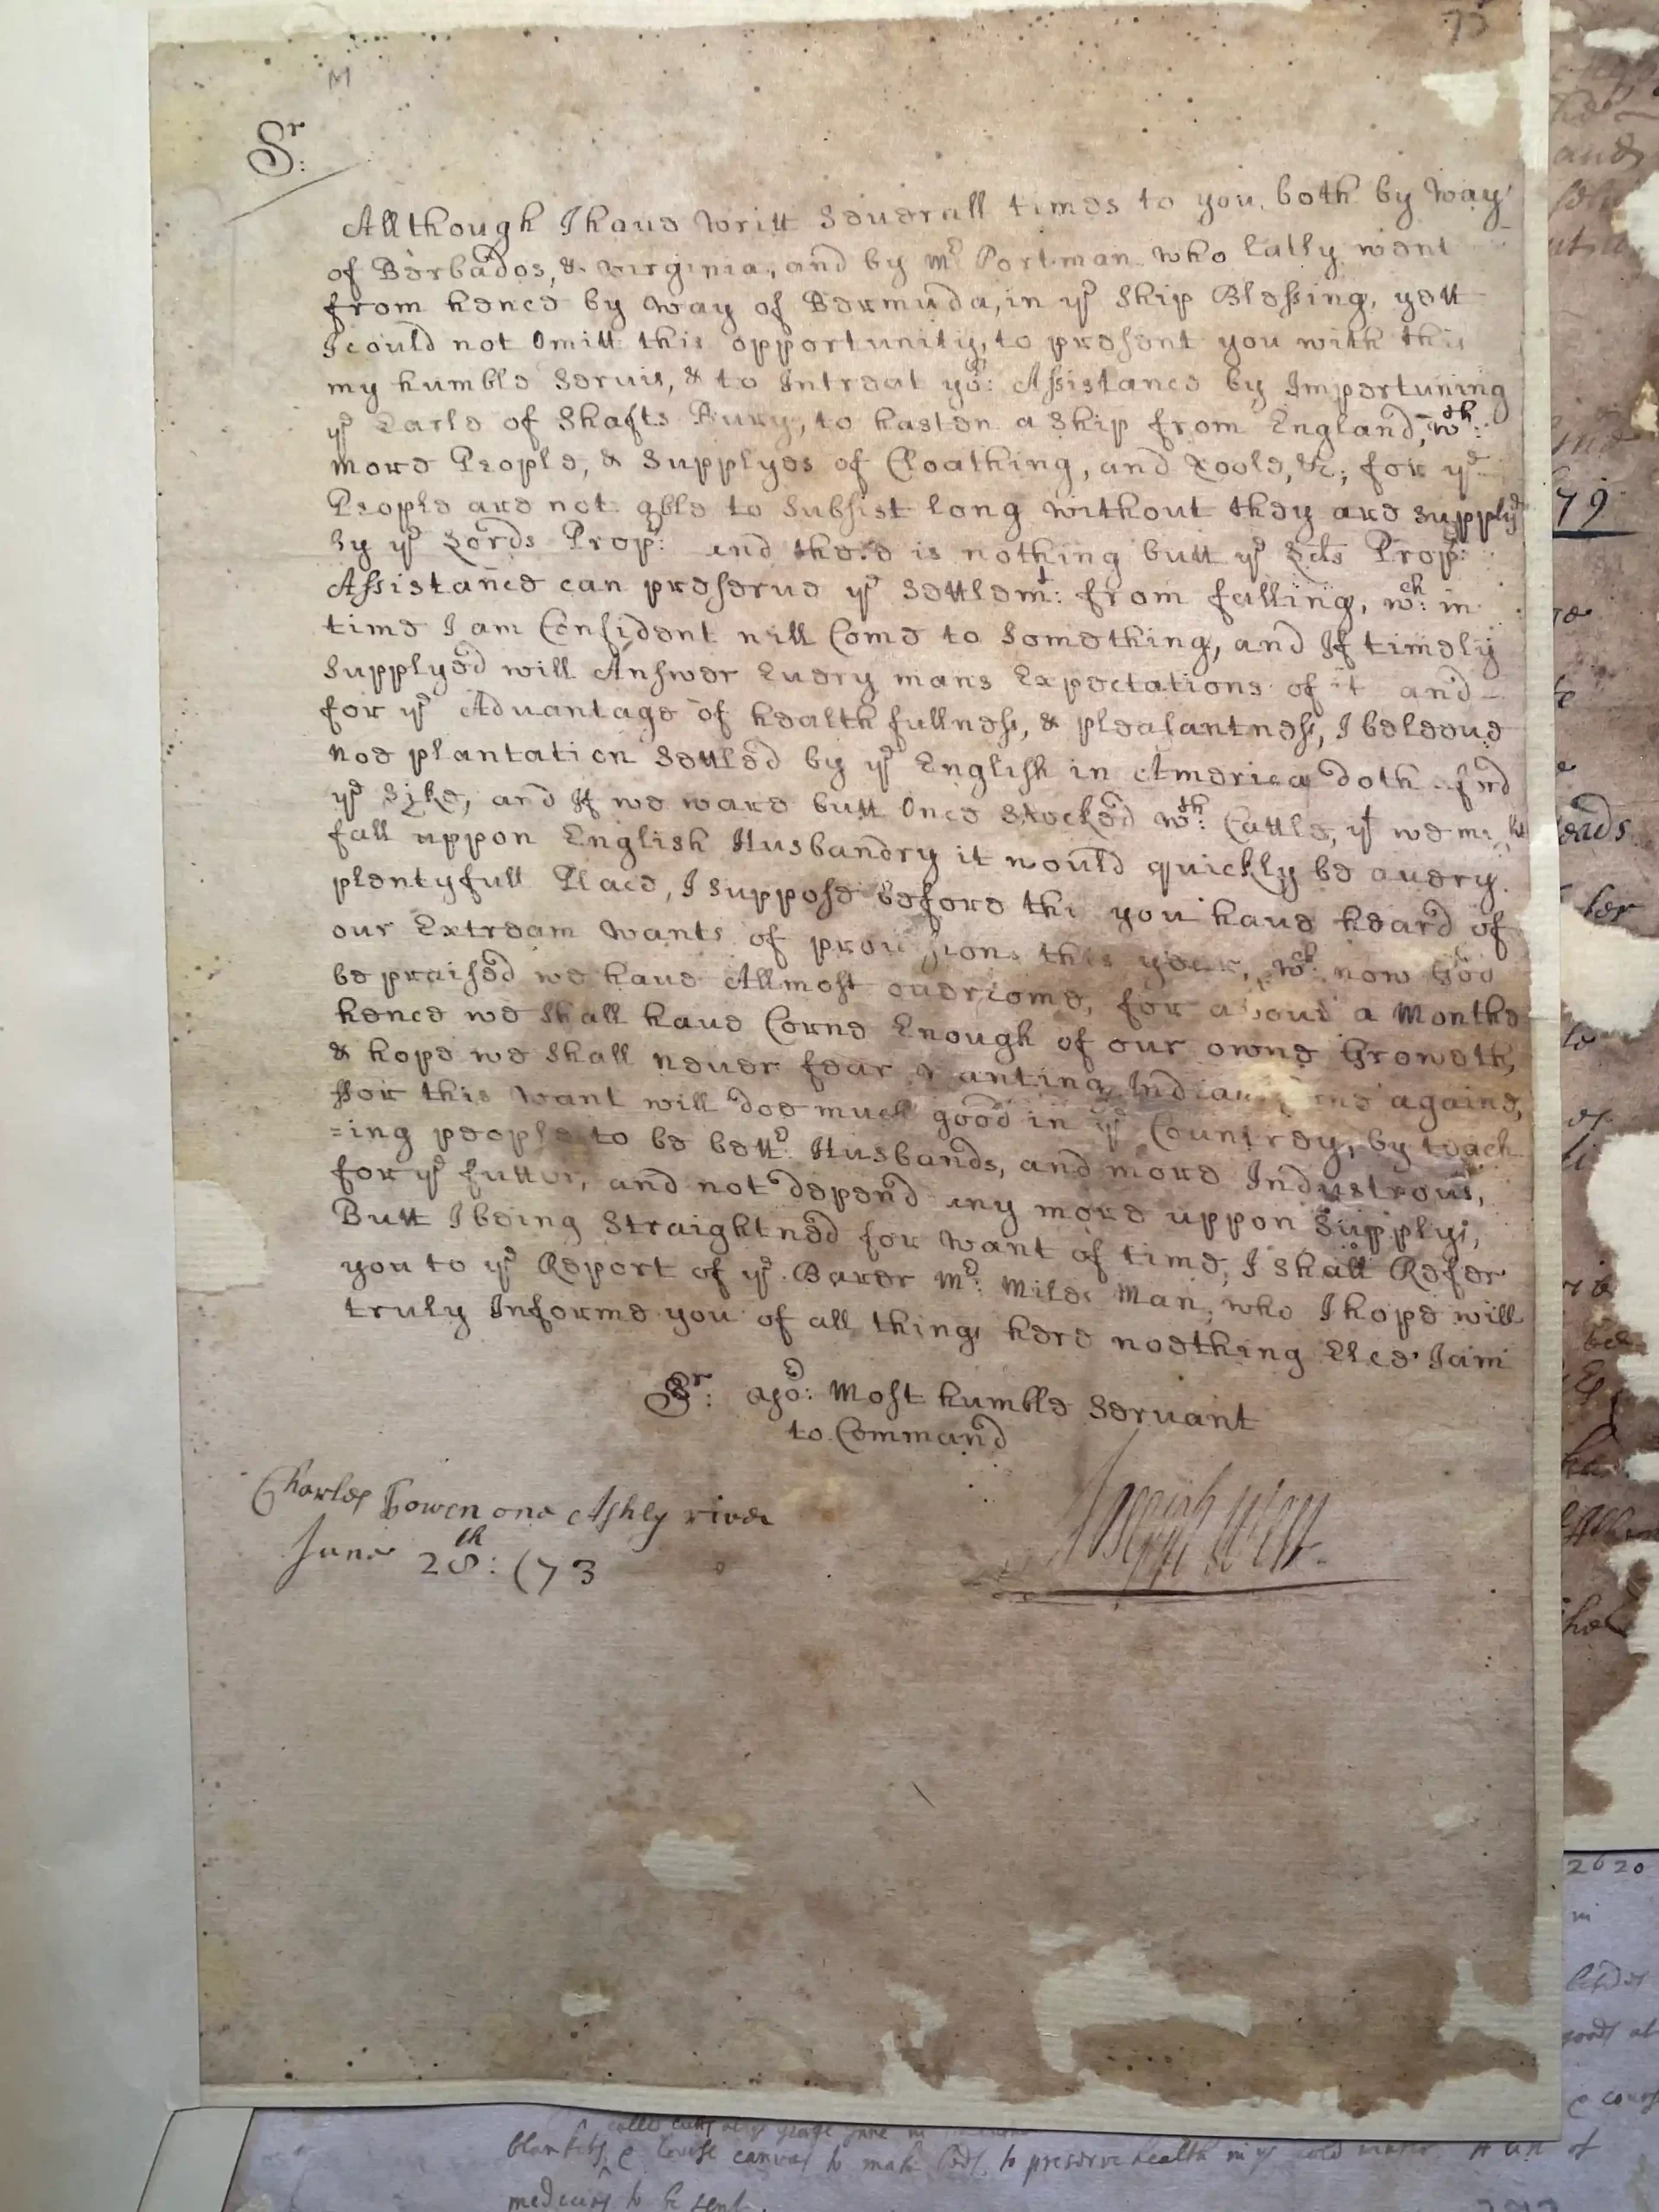 75
M
Sr:
Allthough I haue writt Seuerall times to you, both by Way
of Barbados, & Virginia, and by Mr Portman who latly went
from hence by way of Bermuda, in ye Ship Blessing, yett
I could not Omitt this opportunity, to present you with this
my humble Seruis, & to Intreat yor: Assistance by Importuning
ye Earle of Shafts Bury, to hasten a Ship from England, wth:
more People, & Supplyes of Cloathing, and Tools, &c; for ye
People are not able to Subsist long without they are Supplyed
by ye Lords Prop: and there is nothing butt ye Lds Prop:
Assistance can preserue ye Settlemt: from falling, wch: in
time I am Confident will Come to Something, and If timely
Supplyed will Answer Euery mans Expectations of it and
for ye Aduantage of healthfullness, & pleasantness, I beleeue
noe plantation Setled by ye English in America doth find
ye Like, and If we ware butt Once Stocked wth: Cattle, yt we might
fall uppon English Husbandry it would quickly be a uery
plentyfull Place, I Suppose before this you haue heard of
our Extream Wants of prouissions this year, wch: now God
be praised we haue Allmost ouercome, for about a Months
hence we Shall haue Corne Enough of our owne Groweth,
& hope we Shall neuer fear wanting Indian againe,
ffor this want will doe much good in ye Countrey, by teach
=ing people to be bettr: Husbands, and more Industrous,
for ye futtur, and not depend any more uppon Supplys,
Butt I being Straightned for want of time, I Shall Refer
you to ye Report of ye Barer Mr: Miles Man, who I hope will
truly Informe you of all things here noething Elce I am
Sr: yor: Most humble Servant
to Command
Charles Towen one Ashly river
June 28th: (73
Joseph West
79
2620
blankets & Course canvas to make to preserve health in ye cold
medecins to be sent